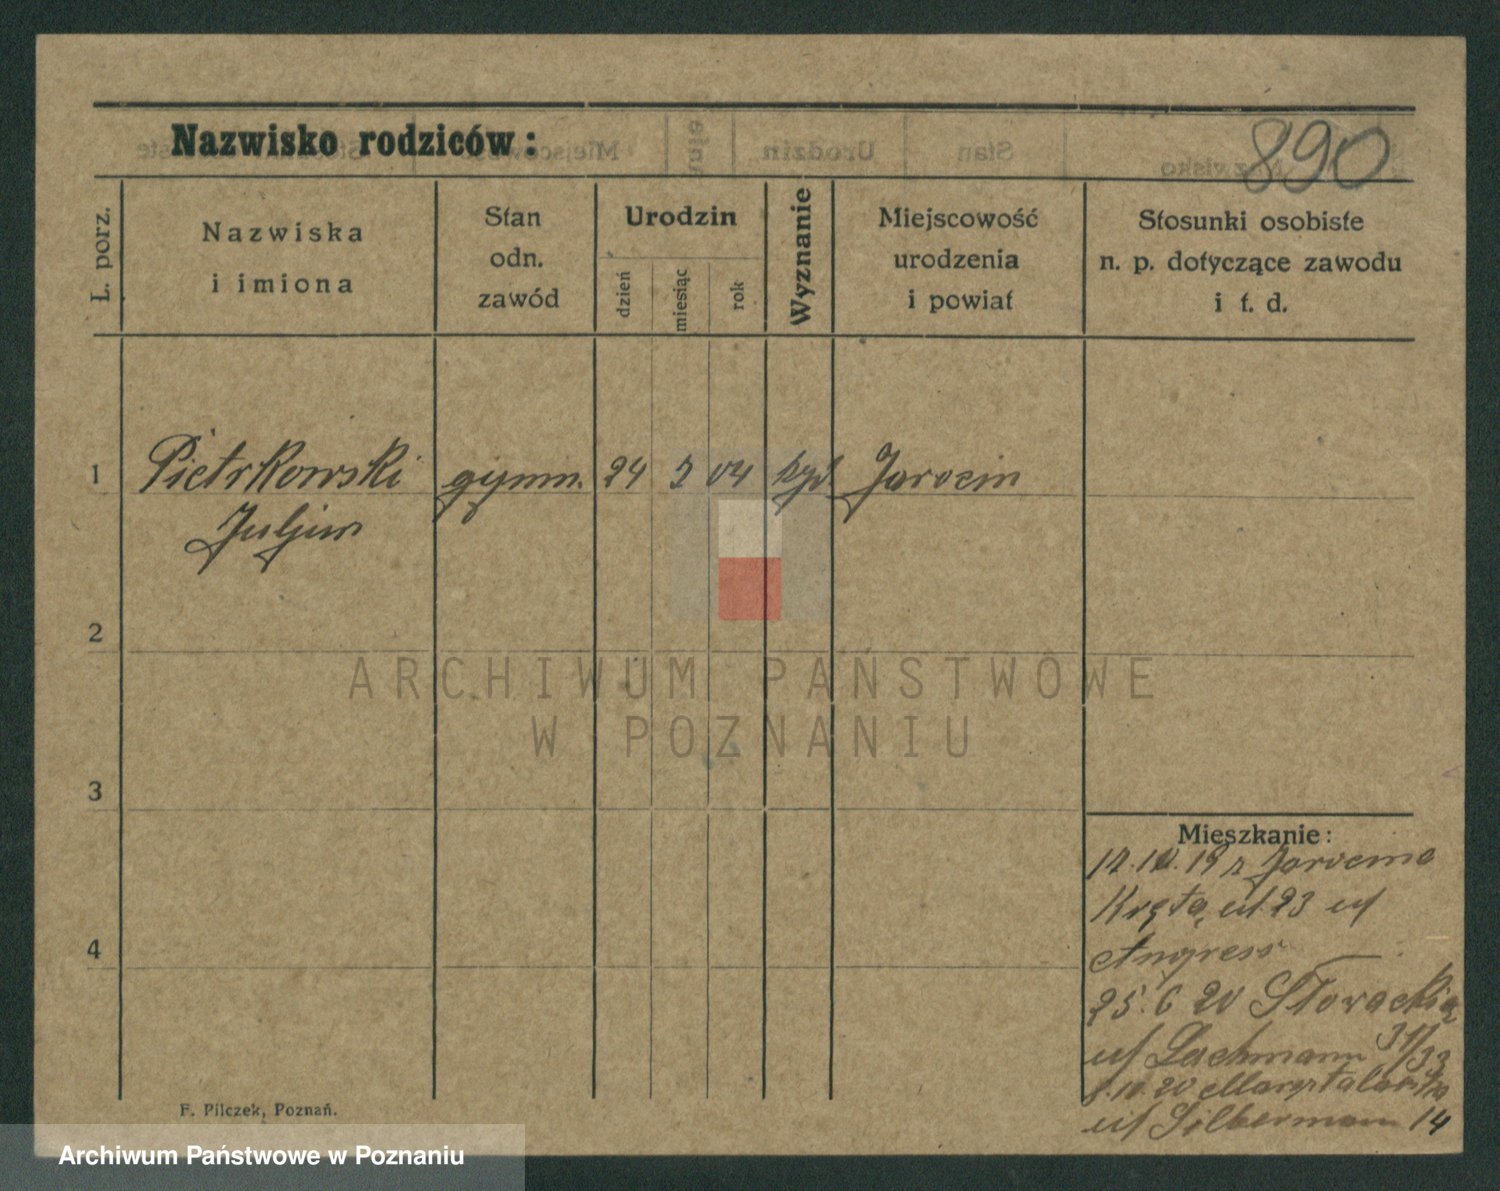 Nazwisko rodziców:
890
L. porz.
Nazwiska
i imiona
Stan
odn.
zawód
Urodzin
dzień
miesiąc
rok
Wyznanie
Miejscowość
urodzenia
i powiat
Stosunki osobiste
n. p. dotyczące zawodu
i t. d.
1 Pietrkowski gymn. 24 2 04 żyd. Jarocin
Juljus
2
3
4
ARCHIWUM PAŃSTWOWE
W POZNANIU
Mieszkanie:
17.10.19 z Jarocina
Kręta ul 23
Angress
25.6 20 Słowackiego
Lachmann 31/33
.10.20
Silbermann 14
F. Pilczek, Poznań.
Archiwum Państwowe w Poznaniu